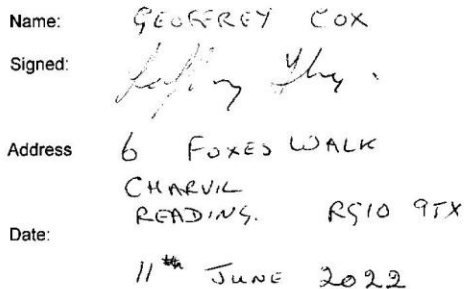 Name: GEOFFREY COX
Signed:
Address 6 FOXES WALK
CHARVIL
READING. RG10 9TX
Date:
11th JUNE 2022